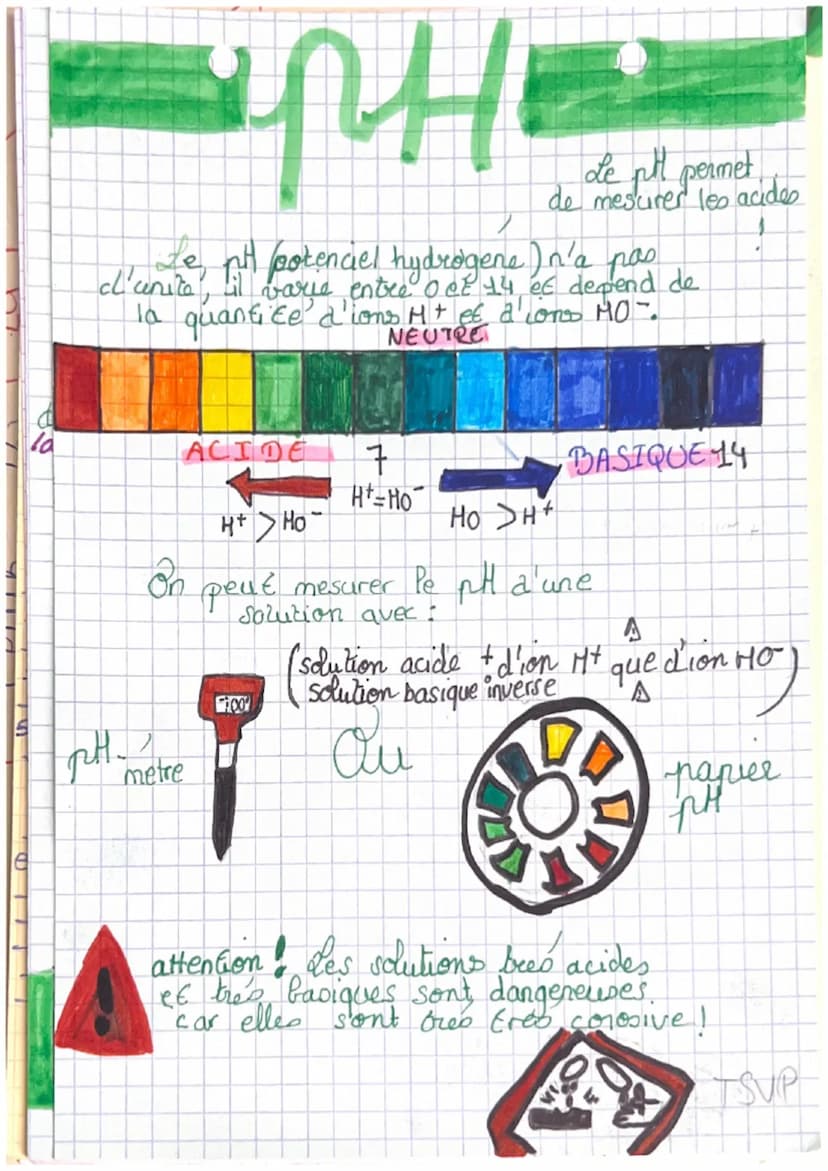 pH
Le pH permet
de mesurer les acides
!
Le pH (potenciel hydrogène) n'a pas
d'unité, il varie entre 0 et 14 et depend de
la quantité d'ions H+ et d'ions HO-.
NEUTRE
ACIDE 7 BASIQUE 14
H+ > HO- H+=HO- HO > H+
On peut mesurer le pH d'une
solution avec :
(solution acide + d'ion H+ que d'ion HO-)
solution basique inverse
-,00°
pH-mètre Ou papier pH
attention ! Les solutions très acides
et très basiques sont dangereuses.
car elles sont très très corosive !
TSVP